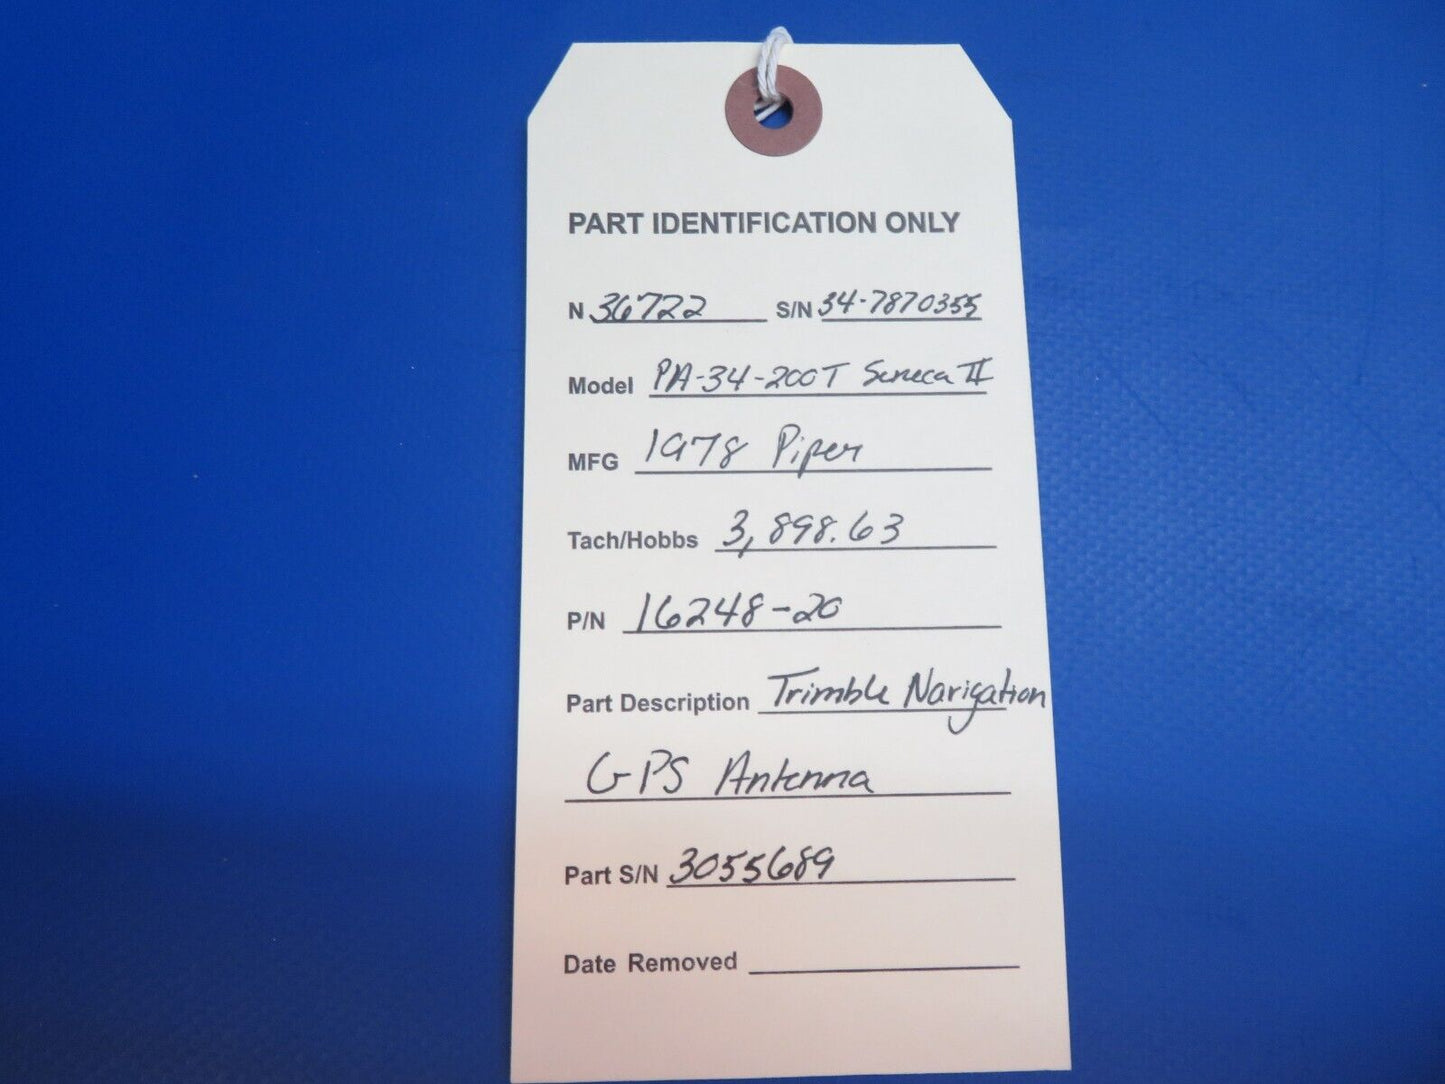 PART IDENTIFICATION ONLY
N 36722 S/N 34-7870355
Model PA-34-200T Seneca II
MFG 1978 Piper
Tach/Hobbs 3,898.63
P/N 16248-20
Part Description Trimble Navigation
GPS Antenna
Part S/N 3055689
Date Removed